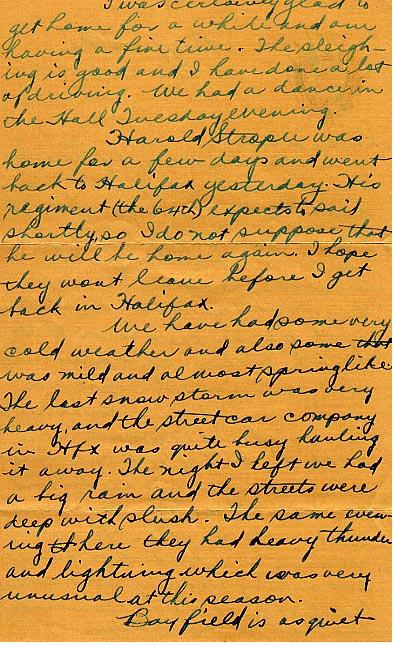 I was certainly glad to
get home for a while and am
having a fine time. The sleigh-
ing is good and I have done a lot
of driving. We had a dance in
the Hall Tuesday evening.
Harold Strople was
home for a few days and went
back to Halifax yesterday. His
regiment (the 64th) expects to sail
shortly, so I do not suppose that
he will be home again. I hope
they wont leave before I get
back in Halifax.
We have had some very
cold weather and also some that
was mild and almost springlike.
The last snow storm was very
heavy, and the street car company
in Hfx was quite busy hauling
it away. The night I left we had
a big rain and the streets were
deep with slush. The same even-
ing here they had heavy thunder
and lightning which was very
unusual at this season.
Bayfield is as quiet